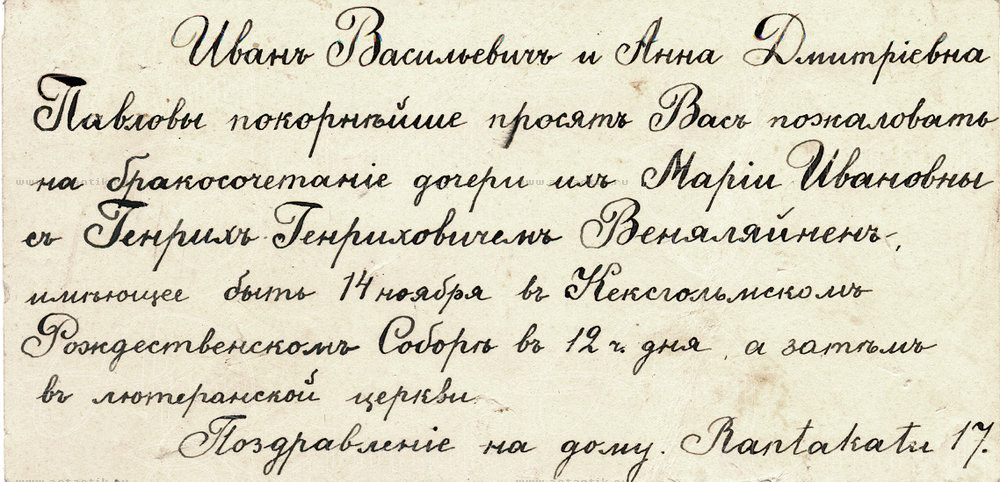 Иванъ Васильевичъ и Анна Дмитріевна
Павловы покорнѣйше просятъ Васъ пожаловать
на бракосочетаніе дочери ихъ Маріи Ивановны
съ Генрихъ Генриховичемъ Веняляйненъ,
имѣющее быть 14 ноября въ Кексгольмскомъ
Рождественскомъ Соборѣ въ 12 ч. дня, а затѣмъ
въ лютеранской церкви.
Поздравленіе на дому. Rantakatu 17.